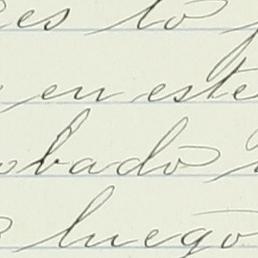 es to
en este
obado
luego